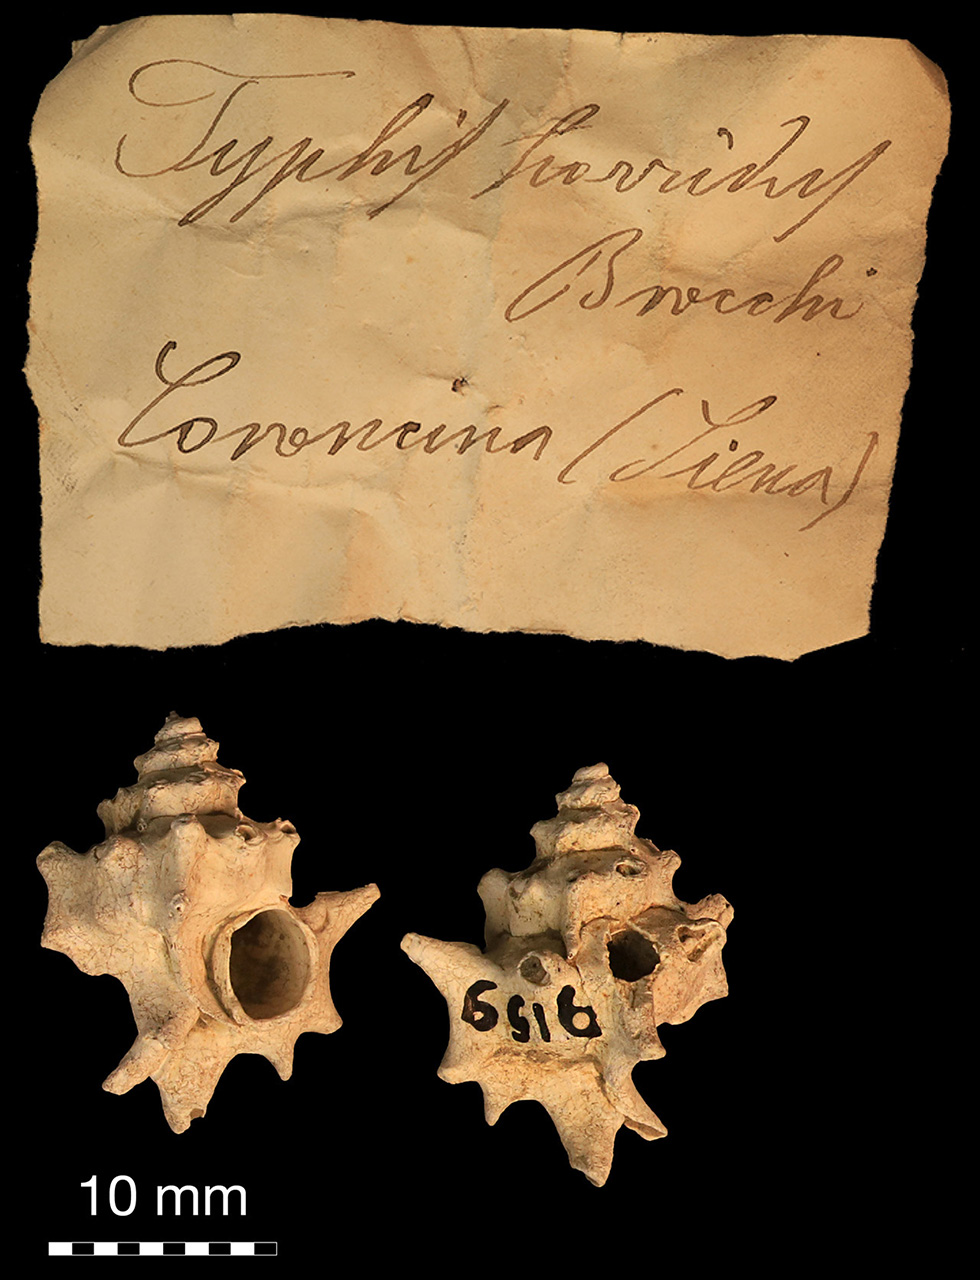 Typhis horridus
Brocchi
Coroncina (Siena)
10 mm